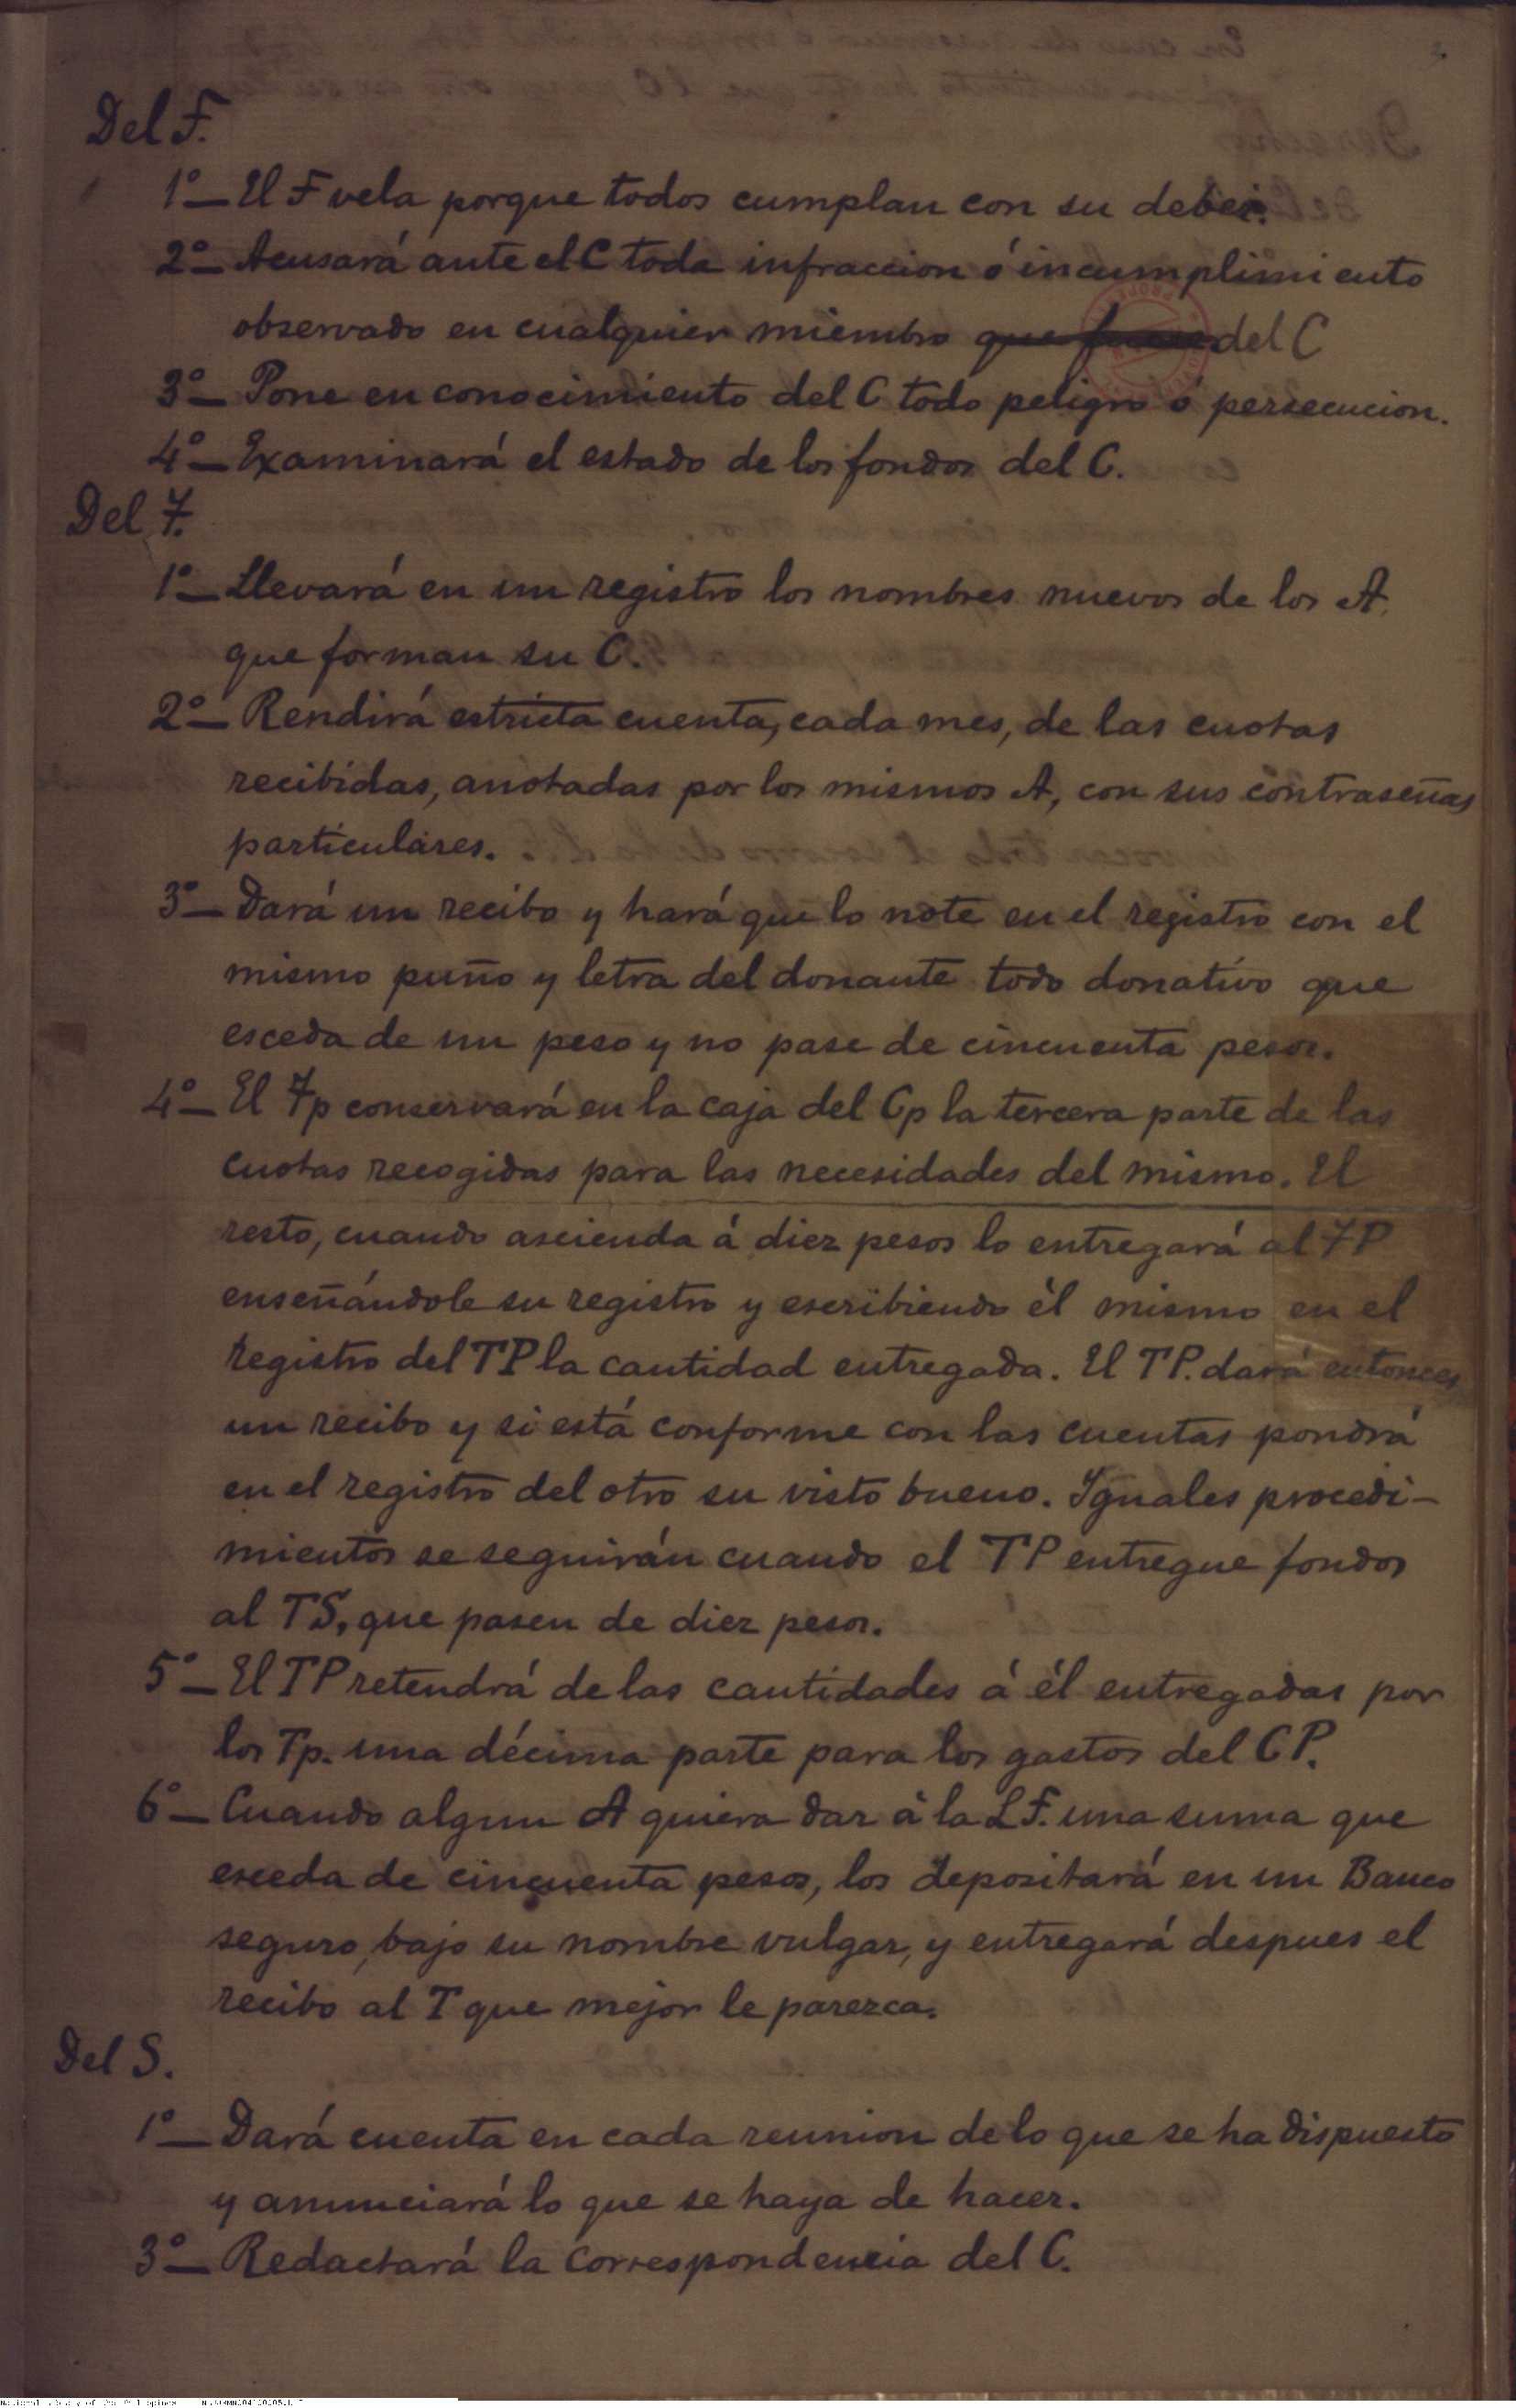 Del F.
1º— El F vela porque todos cumplan con su deber.
2º— Acusará ante el C toda infraccion ó incumplimiento
observado en cualquier miembro que fuere del C
3º— Pone en conocimiento del C todo peligro ó persecucion.
4º— Examinará el estado de los fondos del C.
Del T.
1º— Llevará en un registro los nombres nuevos de los A.
que forman su C.
2º— Rendirá estricta cuenta, cada mes, de las cuotas
recibidas, anotadas por los mismos A, con sus contraseñas
particulares.
3º— Dará un recibo y hará que lo note en el registro con el
mismo puño y letra del donante todo donativo que
esceda de un peso y no pase de cincuenta pesos.
4º— El Tp conservará en la caja del Cp la tercera parte de las
cuotas recogidas para las necesidades del mismo. El
resto, cuando ascienda á diez pesos lo entregará al TP
enseñándole su registro y escribiendo él mismo en el
registro del TP la cantidad entregada. El TP. dará entonces
un recibo y si está conforme con las cuentas pondrá
en el registro del otro su visto bueno. Iguales procedi-
mientos se seguirán cuando el TP entregue fondos
al TS, que pasen de diez pesos.
5º— El TP retendrá de las cantidades á él entregadas por
los Tp. una décima parte para los gastos del CP.
6º— Cuando algun A quiera dar á la LF. una suma que
esceda de cincuenta pesos, los depositará en un Banco
seguro, bajo su nombre vulgar, y entregará despues el
recibo al T que mejor le parezca.
Del S.
1º— Dará cuenta en cada reunion de lo que se ha dispuesto
y anunciará lo que se haya de hacer.
3º— Redactará la correspondencia del C.